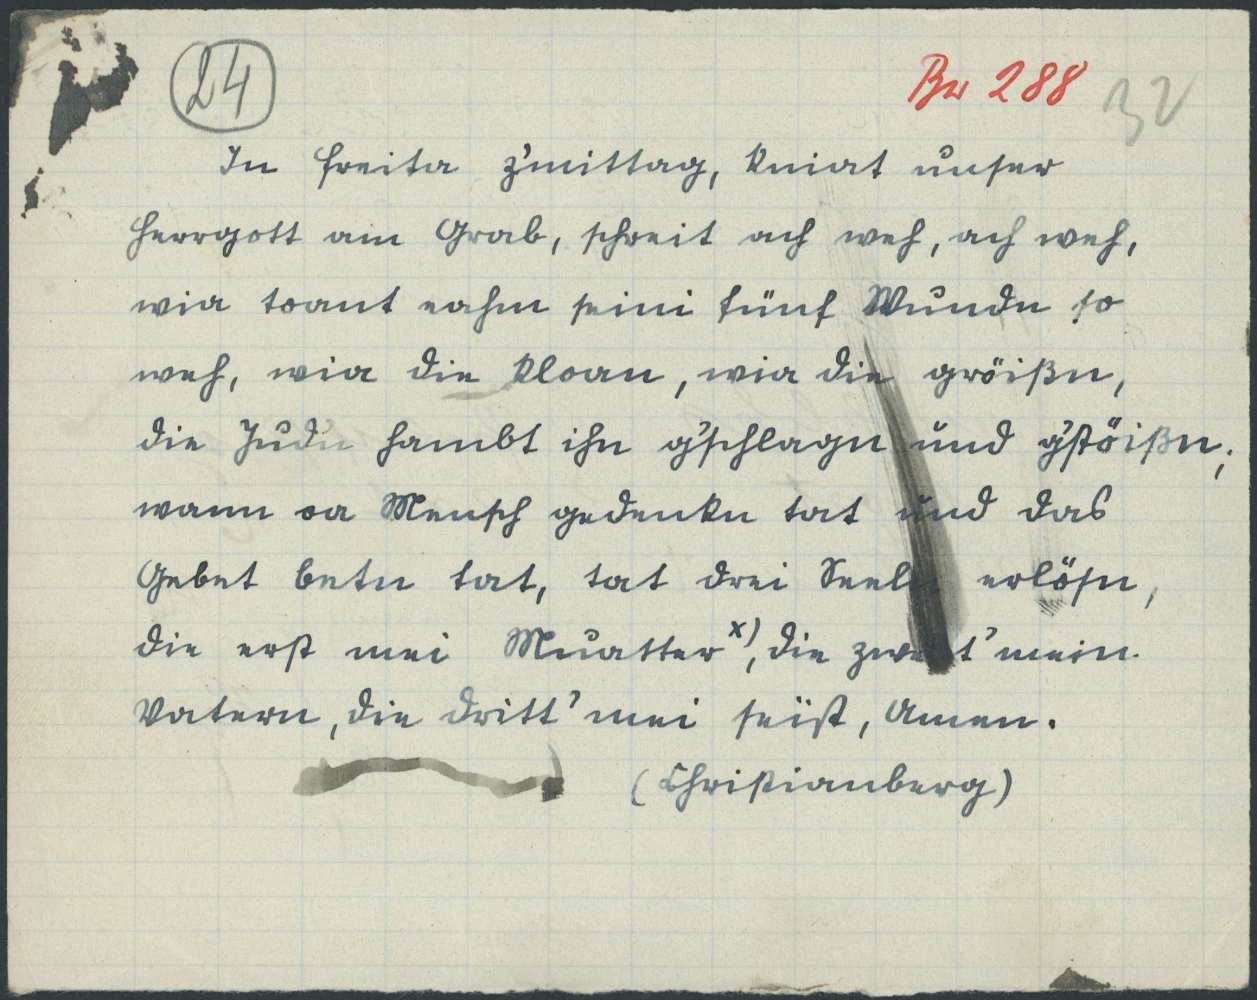 24
Bw 288 32
In Freita z'mittag, kniat unser
Herrgott am Grab, schreit ach weh, ach weh,
wia toant eahm seini fünf Wundn so
weh, wia die kloan, wia die größn,
die Judn hambt ihn g'schlagn und g'stößn;
wann oa Mensch gedenkn tat und das
Gebet betn tat, tat drei Seeln erlösn,
die erst mei Muatter x), die zweit' mein
Vatern, die dritt' mei seist, Amen.
(Christianberg)